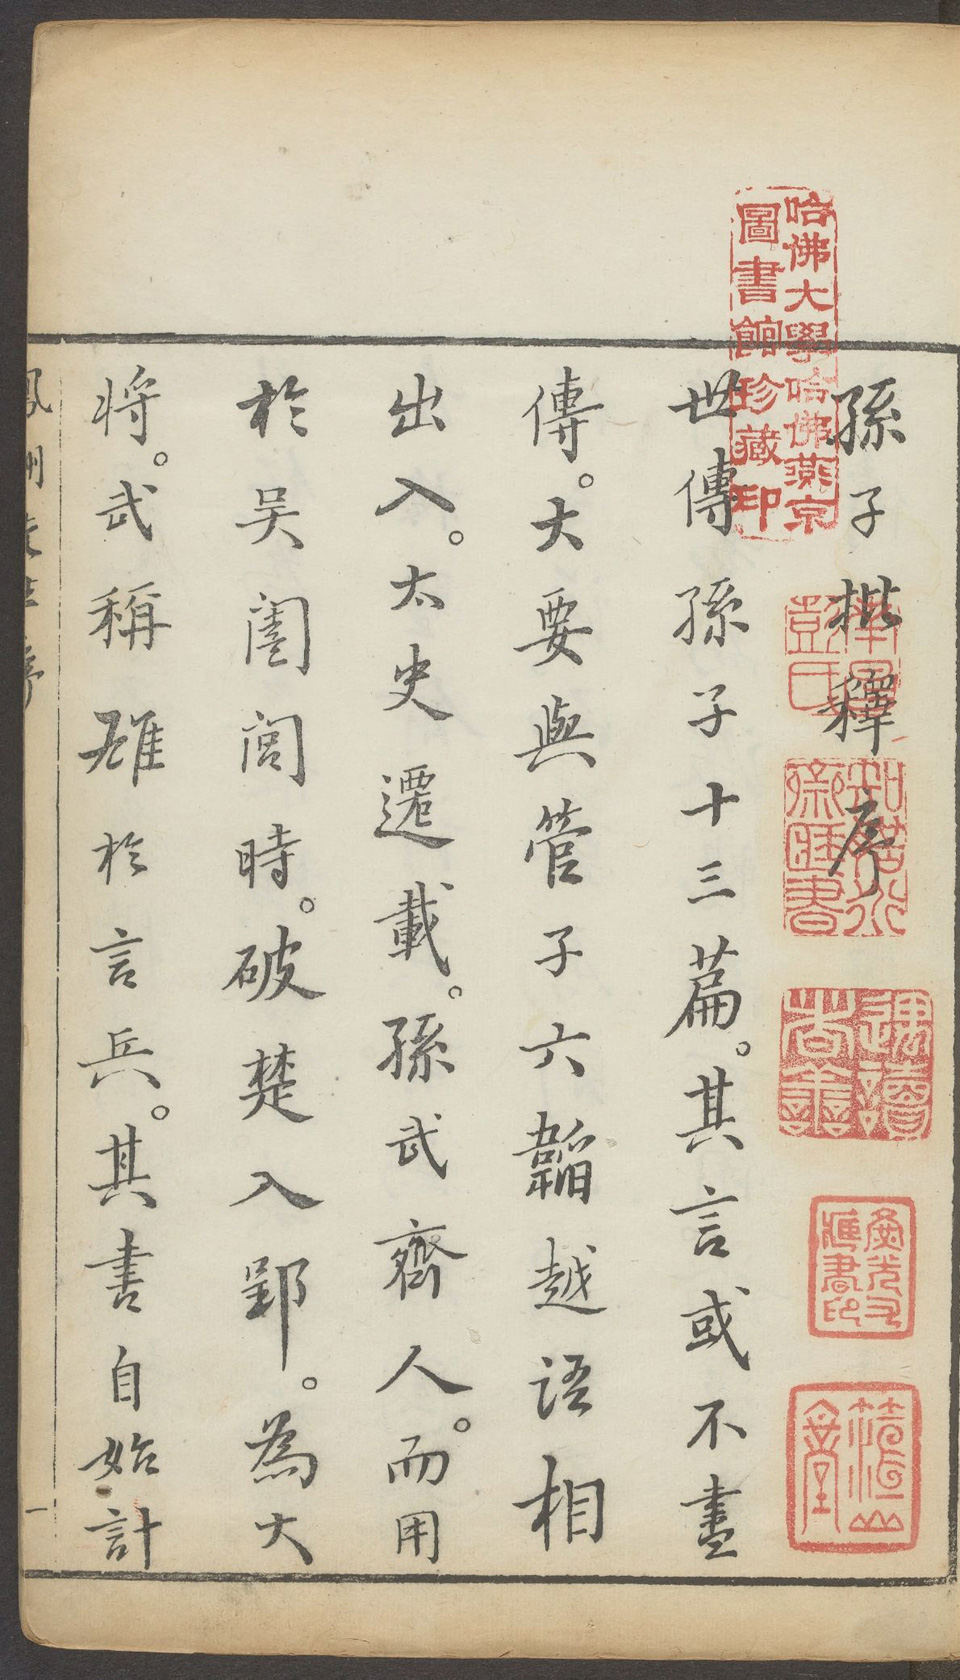 孫子批釋序
世傳孫子十三篇。其言或不盡
傳。大要與管子六韜越語相
出入。太史遷載。孫武齊人。而用
於吴闔閭時。破楚入郢。為大
将。武稱雄於言兵。其書自始計
哈佛大學哈佛燕京
圖書館珍藏印